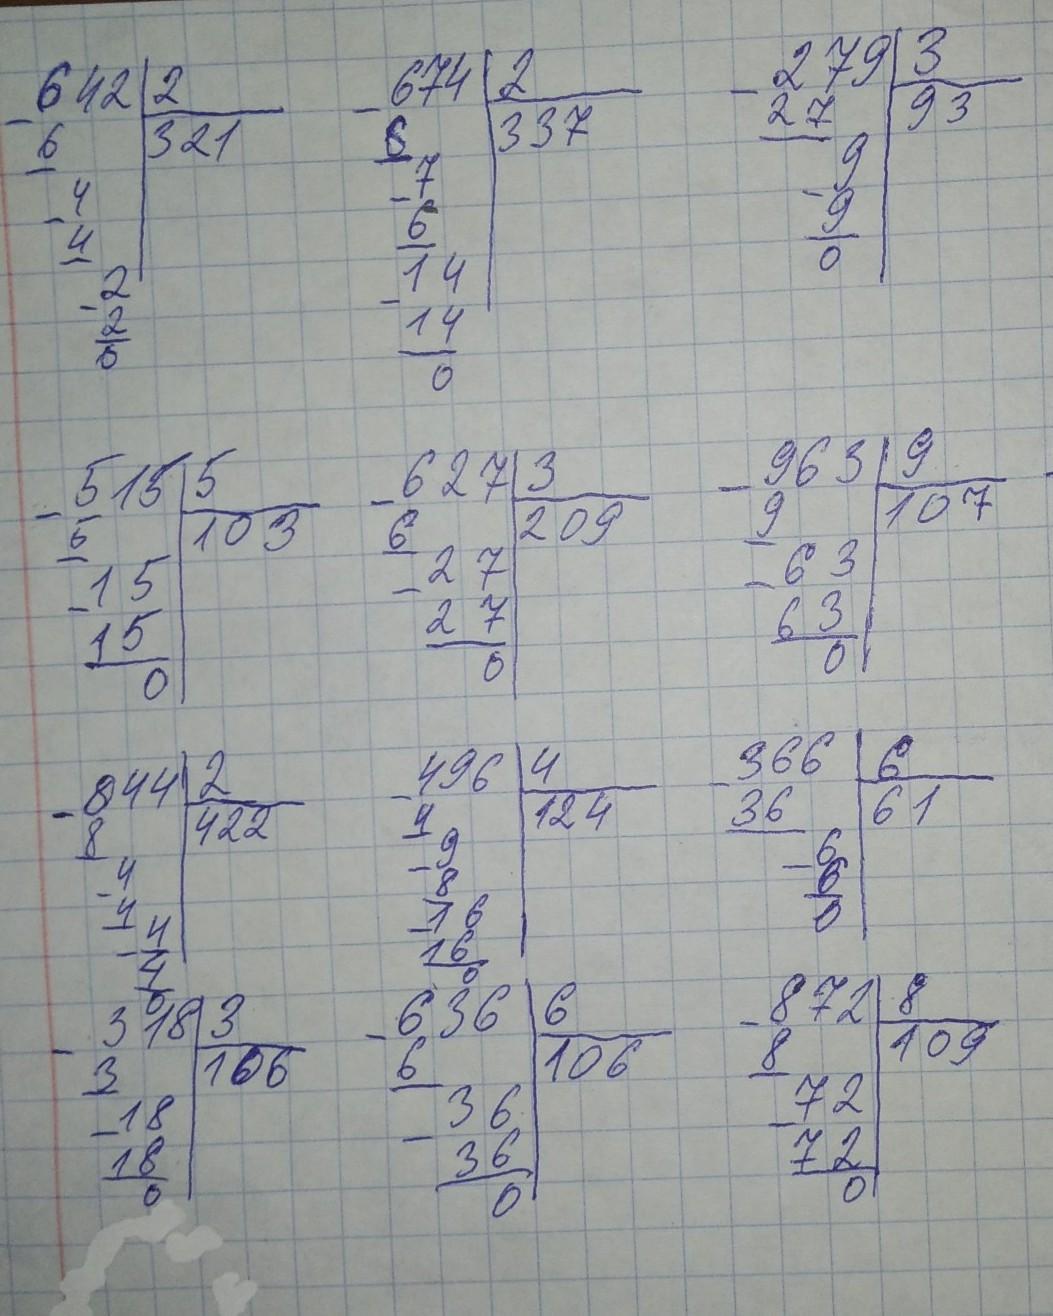 642 2 674 2 279 3
-6 321 -6 337 -27 93
-4 -7 9
4 6 -9
-2 -14 0
2 14
0 0
-515 5 -627 3 -963 9
5 103 6 209 9 107
-15 -27 -63
15 27 63
0 0 0
-844 2 -496 4 -366 6
8 422 4 124 36 61
-4 -9 -6
4 8 6
-4 -16 0
4 16
0 0
-318 3 -636 6 -872 8
3 106 6 106 8 109
-18 -36 -72
18 36 72
0 0 0